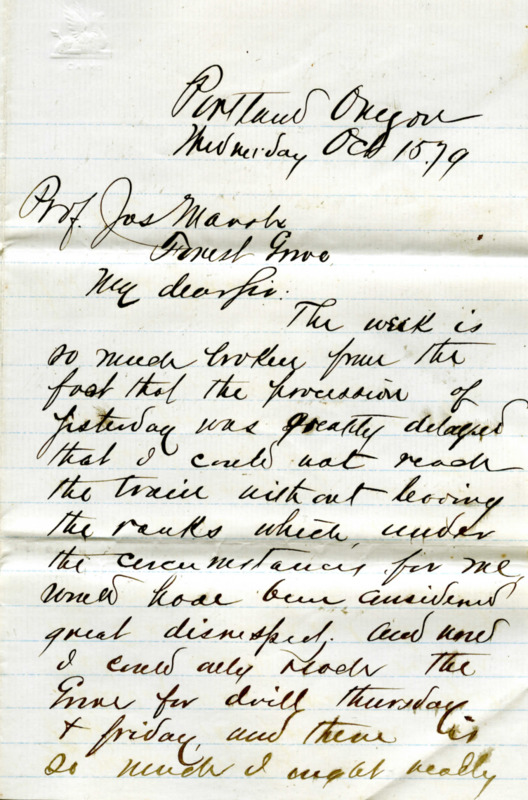 Portland Oregon
Wednesday Oct 15. 79
Prof. Jos Marsh
Forest Grove
My dear Sir.
The week is
so much broken from the
fact that the procession of
yesterday was greatly delayed
that I could not reach
the train without leaving
the ranks which, under
the circumstances, for me,
would have been considered
great disrespect. And now
I could only reach the
Grove for drill Thursday
& Friday, and there is
so much I ought really